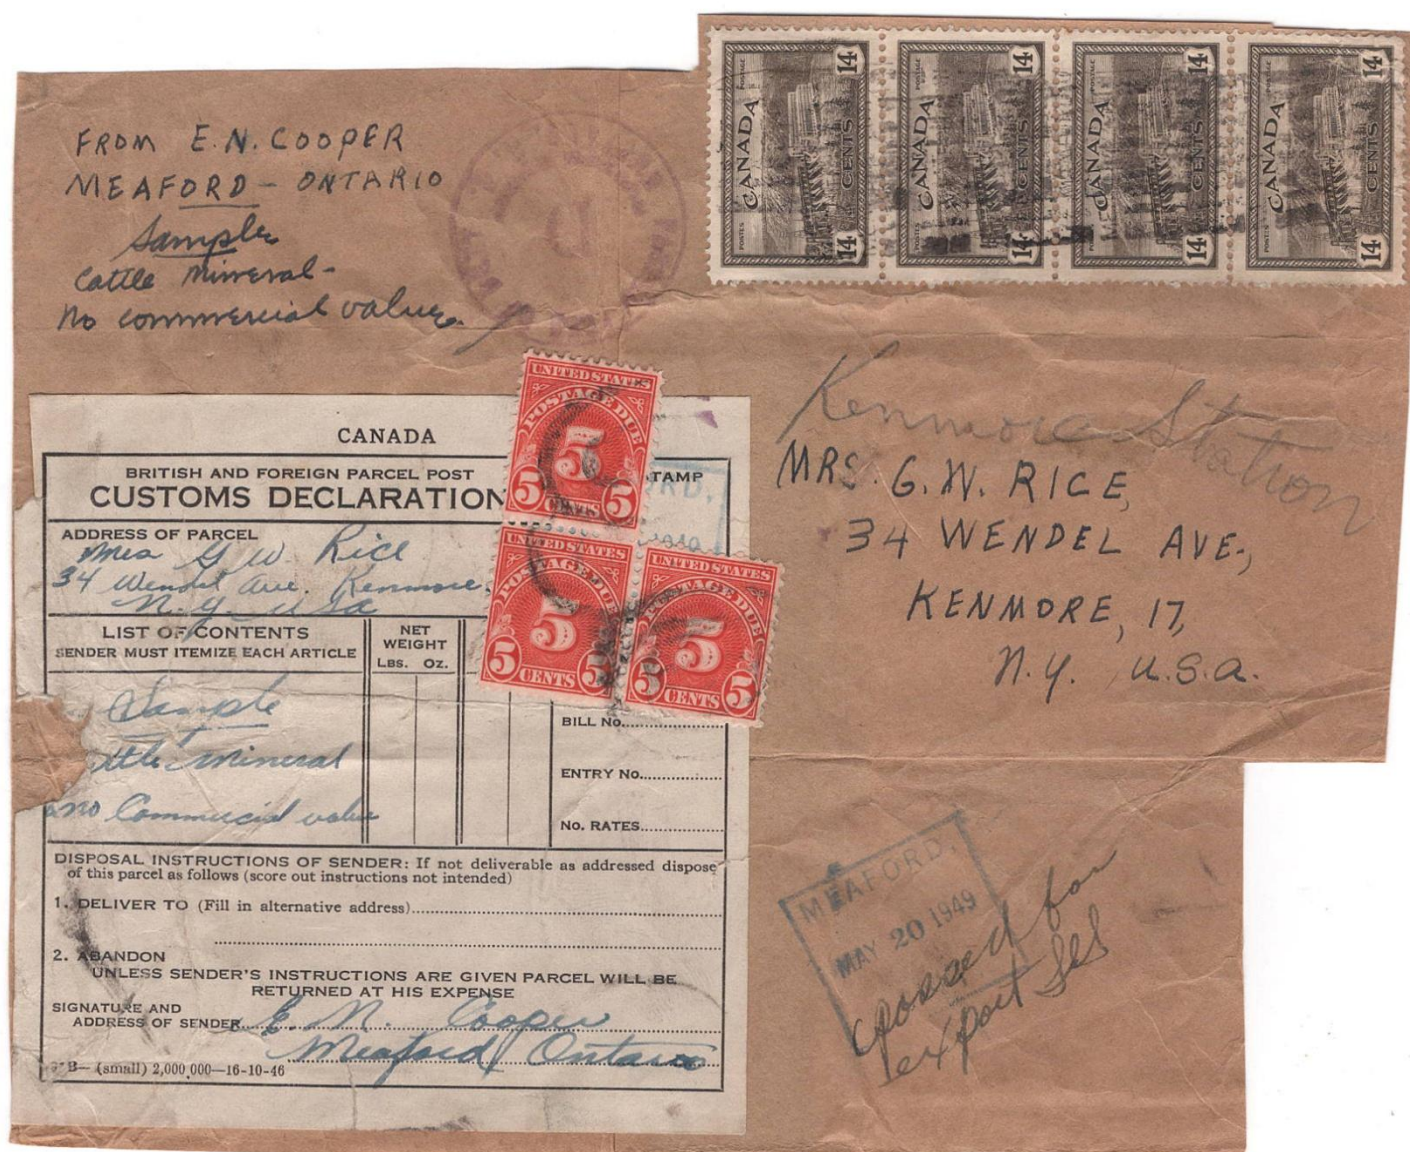 FROM E.N. COOPER
MEAFORD - ONTARIO
Sample
Cattle Mineral -
No commercial value.
POSTES POSTAGE
CANADA
14 CENTS 14
POSTES POSTAGE
CANADA
14 CENTS 14
POSTES POSTAGE
CANADA
14 CENTS 14
POSTES POSTAGE
CANADA
14 CENTS 14
Kenmore Station
MRS. G.W. RICE,
34 WENDEL AVE.,
KENMORE, 17,
N.Y. U.S.A.
UNITED STATES
POSTAGE DUE
5
5 CENTS 5
UNITED STATES
POSTAGE DUE
5
5 CENTS 5
UNITED STATES
POSTAGE DUE
5
5 CENTS 5
CANADA
BRITISH AND FOREIGN PARCEL POST
CUSTOMS DECLARATION
TAMP
ORD,
ADDRESS OF PARCEL
Mrs G W Rice
34 Wendel Ave. Kenmore.
N.Y. USA
LIST OF CONTENTS
SENDER MUST ITEMIZE EACH ARTICLE
NET
WEIGHT
LBS. OZ.
Sample
ttle Mineral
no Commercial value
BILL No.
ENTRY No.
No. RATES
DISPOSAL INSTRUCTIONS OF SENDER: If not deliverable as addressed dispose
of this parcel as follows (score out instructions not intended)
1. DELIVER TO (Fill in alternative address)
2. ABANDON
UNLESS SENDER'S INSTRUCTIONS ARE GIVEN PARCEL WILL BE
RETURNED AT HIS EXPENSE
SIGNATURE AND
ADDRESS OF SENDER E. N. Cooper
Meaford Ontario
B— (small) 2,000,000—16-10-46
MEAFORD,
MAY 20 1949
passed for
export